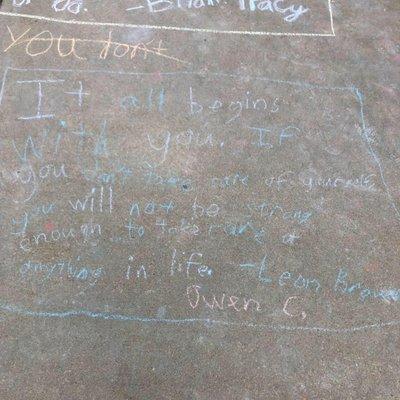 or do. - Brian Tracy
You don't
It all begins
with you. If
you don't take care of yourself,
you will not be strong
enough to take care of
anything in life. - Leon Brown
Owen C.